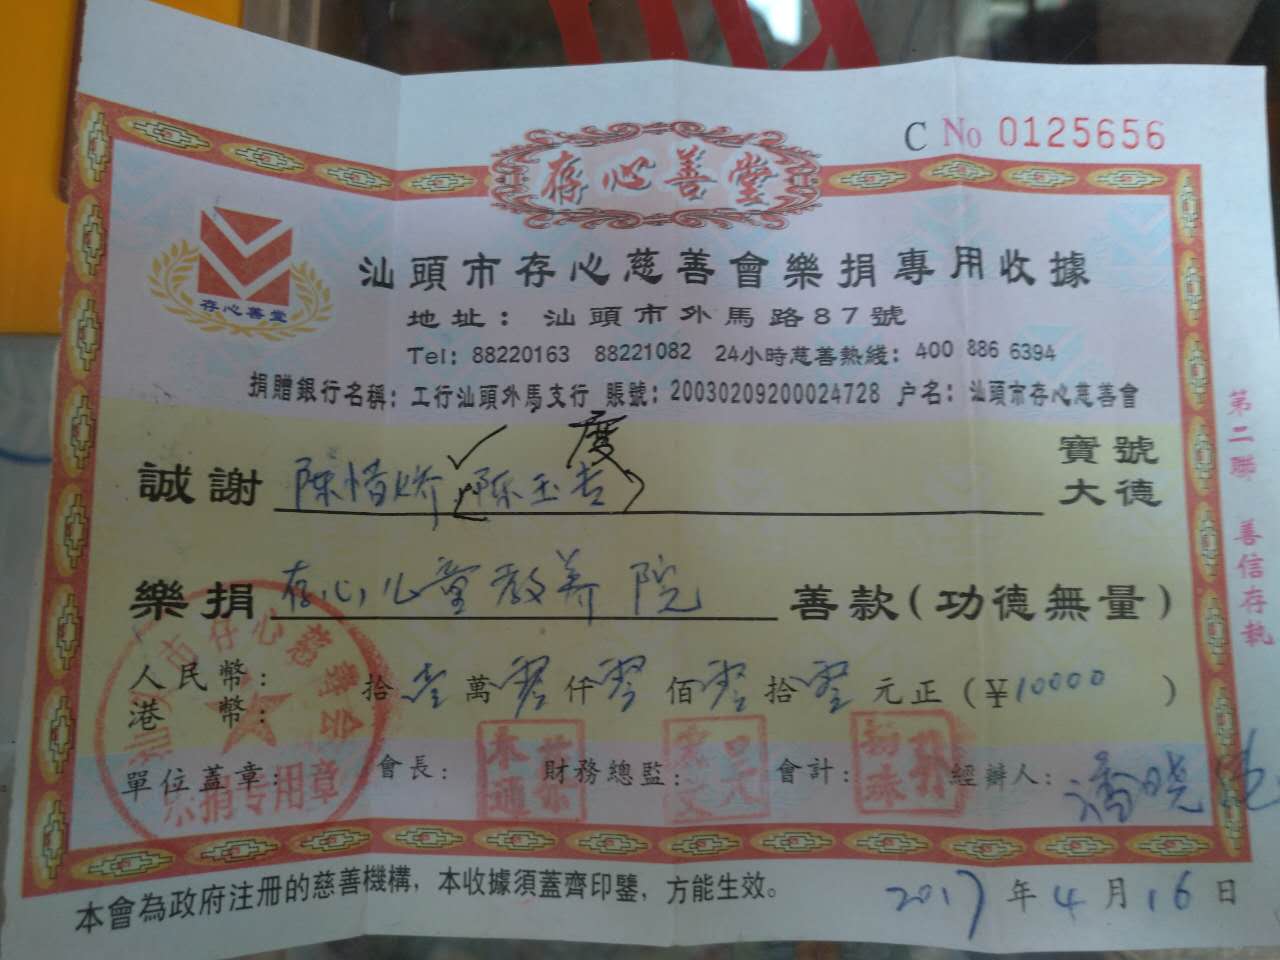 C No 0125656
存心善堂
存心善堂
汕頭市存心慈善會樂捐專用收據
地址：汕頭市外馬路87號
Tel：88220163 88221082 24小時慈善熱綫：400 886 6394
捐贈銀行名稱：工行汕頭外馬支行 賬號：2003020920002472​8 户名：汕頭市存心慈善會
度
誠謝 陳惜娇（陈玉吉） 寶號 大德
樂捐 存心儿童教养院 善款（功德無量）
人民幣：
港幣： 拾壹萬零仟零佰零拾零元正（¥10000）
單位蓋章： 會長： 財務總監： 會計： 經辦人：潘晓
乐捐专用章
本會為政府注冊的慈善機構，本收據須蓋齊印鑒，方能生效。
2017年4月16日
第二聯 善信存執